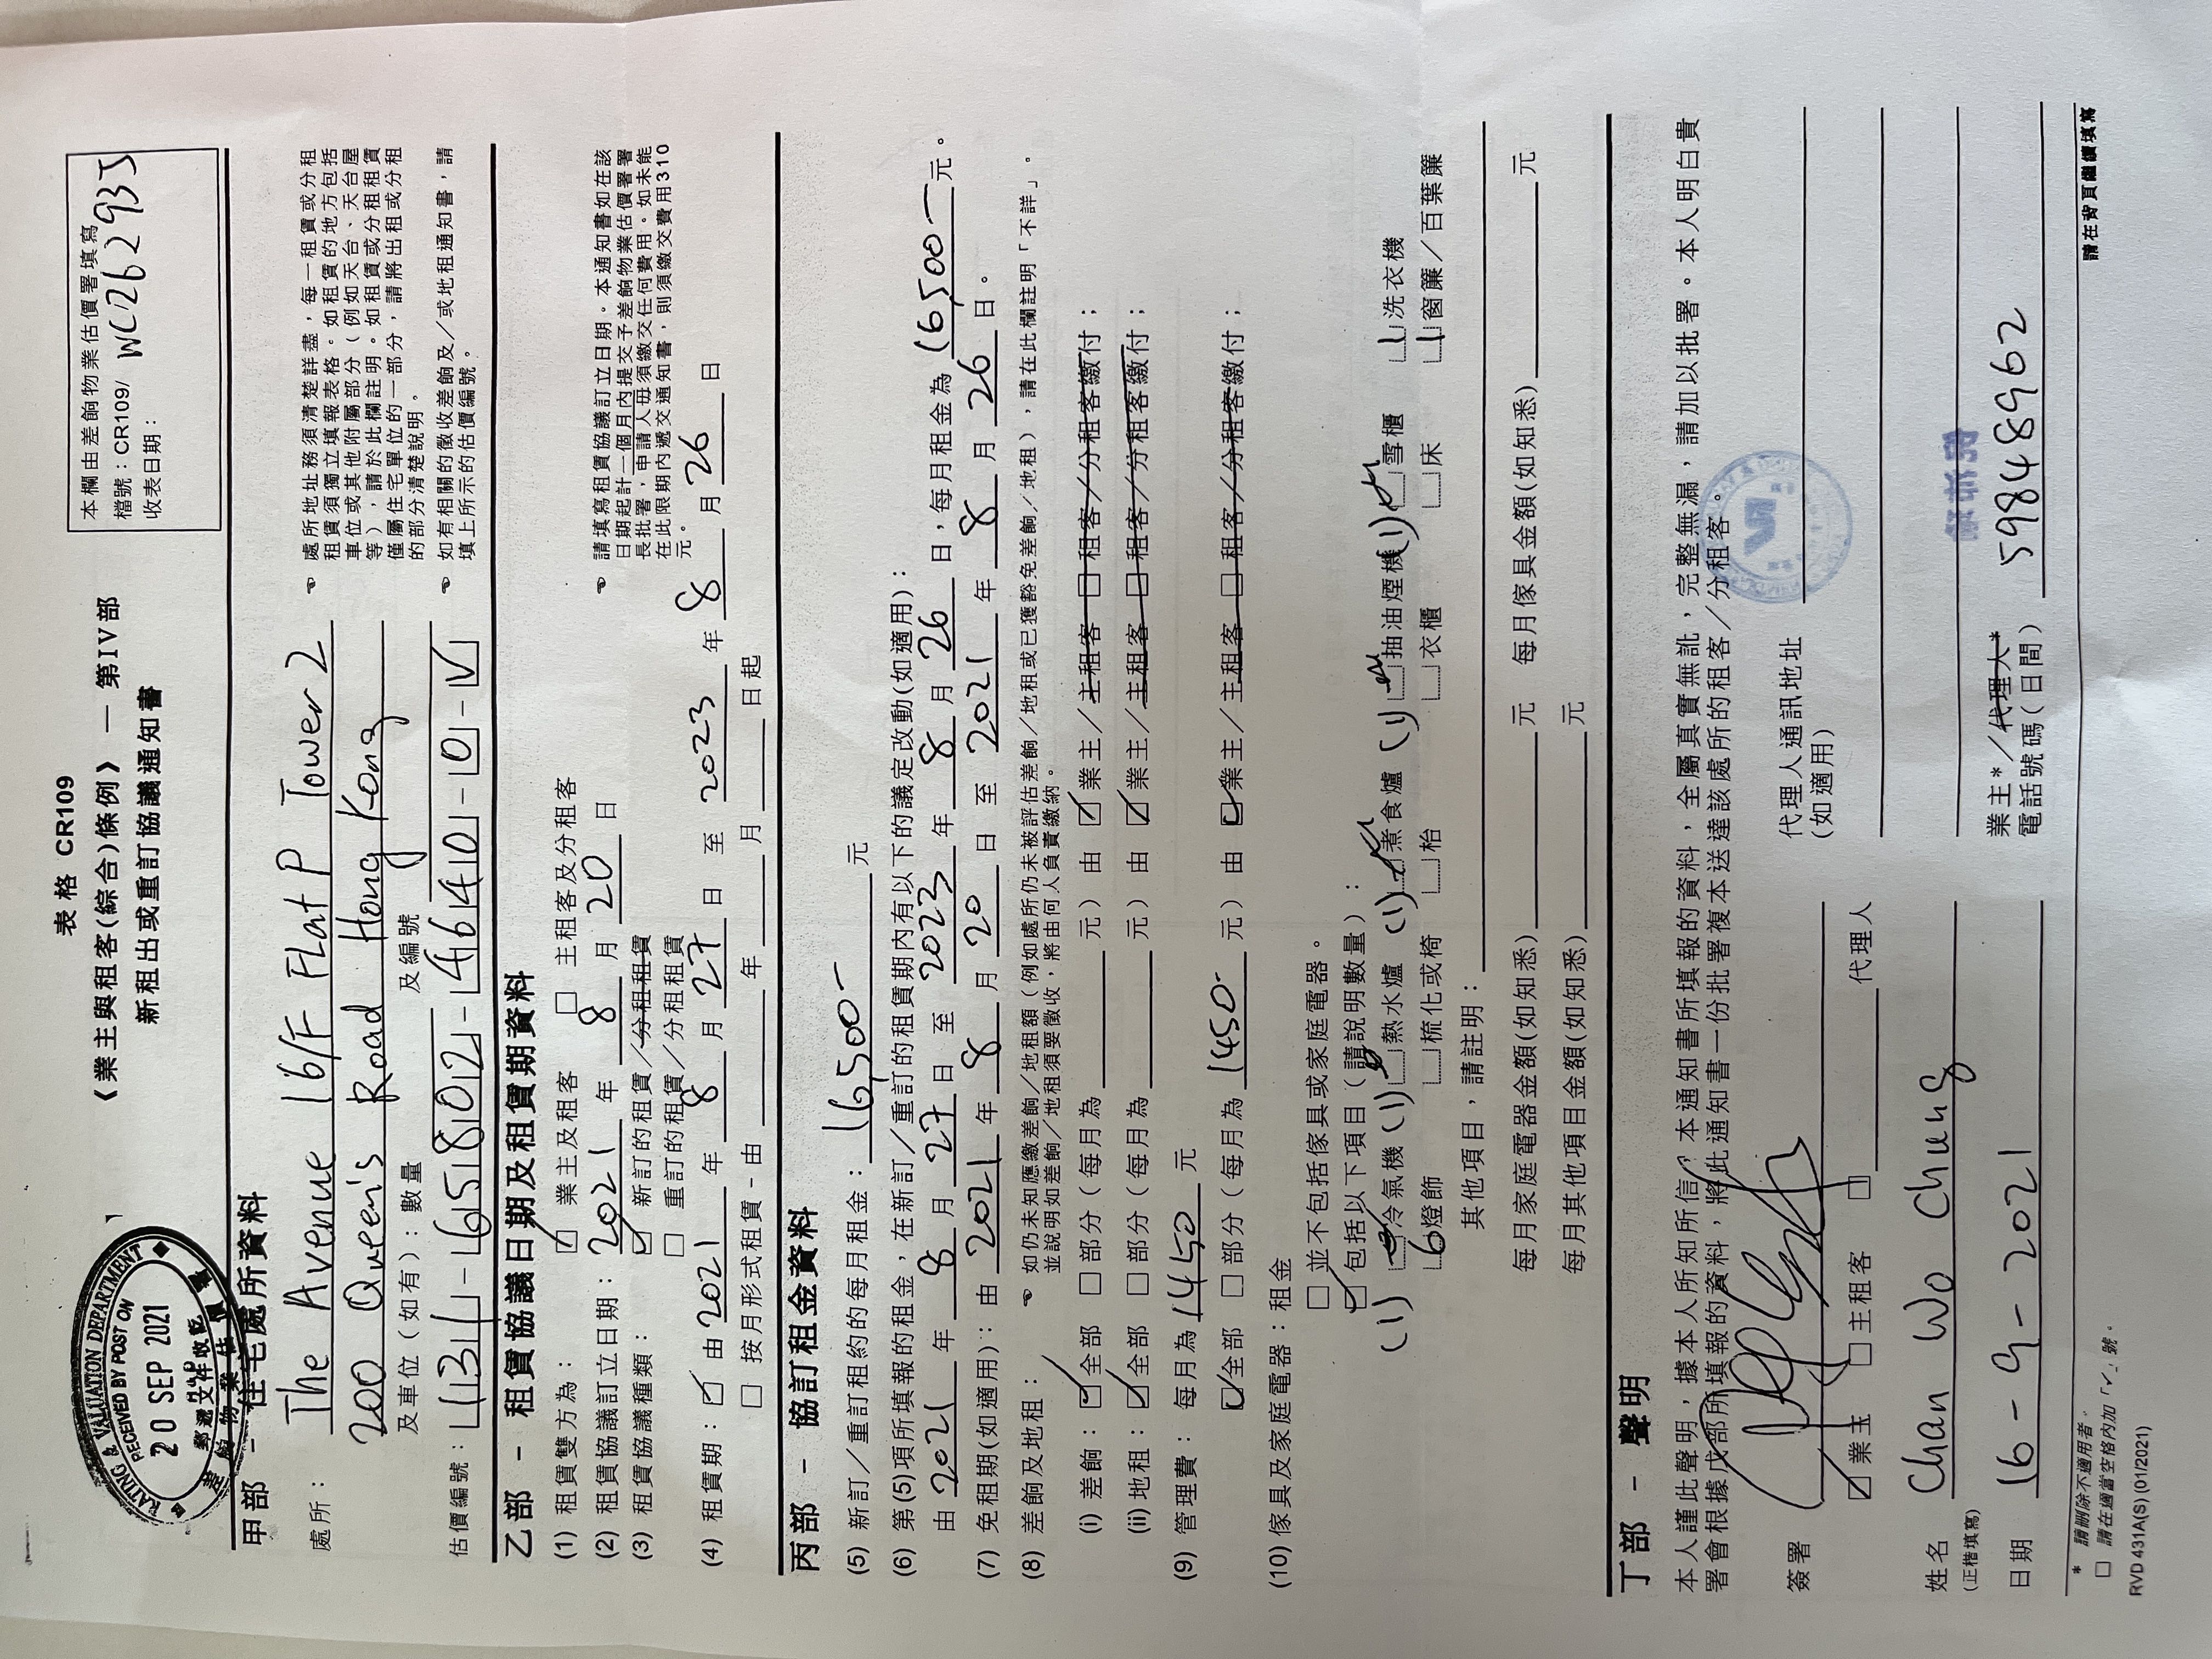 表格 CR109
《業主與租客(綜合)條例》— 第IV部
新租出或重訂協議通知書
本欄由差餉物業估價署填寫
檔號：CR109/ WC1262935
收表日期：
RATING & VALUATION DEPARTMENT
RECEIVED BY POST ON
20 SEP 2021
郵遞文件收訖
差餉物業估價署
甲部 - 住宅處所資料
處所：
The Avenue 16/F Flat P Tower 2
200 Queen's Road Hong Kong
及車位（如有）：數量
及編號
估價編號：131-65802-4640-0-V
☞ 處所地址務須清楚詳盡，每一租賃或分租
租賃須獨立填報表格。如租賃的地方包括
車位或其他附屬部分（例如天台、天台屋
等），請於此欄註明。如租賃或分租租賃
僅屬住宅單位的一部分，請將出租或分租
的部分清楚說明。
☞ 如有相關的徵收差餉及／或地租通知書，請
填上所示的估價編號。
乙部 - 租賃協議日期及租賃期資料
(1) 租賃雙方為： ☑ 業主及租客 □ 主租客及分租客
(2) 租賃協議訂立日期：2021 年 8 月 20 日
(3) 租賃協議種類： ☑ 新訂的租賃／分租租賃
□ 重訂的租賃／分租租賃
(4) 租賃期： ☑ 由 2021 年 8 月 27 日 至 2023 年 8 月 26 日
□ 按月形式租賃 - 由 年 月 日起
☞ 請填寫租賃協議訂立日期。本通知書如在該
日期起計一個月內提交予差餉物業估價署署
長批署，申請人毋須繳交任何費用。如未能
在此限期內遞交通知書，則須繳交費用310
元。
丙部 - 協訂租金資料
(5) 新訂／重訂租約的每月租金： 16,500- 元
(6) 第(5)項所填報的租金，在新訂／重訂的租賃期內有以下的議定改動(如適用)：
由 2021 年 8 月 27 日 至 2023 年 8 月 26 日，每月租金為 16,500- 元。
(7) 免租期(如適用)：由 2021 年 8 月 20 日 至 2021 年 8 月 26 日。
(8) 差餉及地租： ☞ 如仍未知應繳差餉／地租額（例如處所仍未被評估差餉／地租或已獲豁免差餉／地租），請在此欄註明「不詳」。
並說明如差餉／地租須要徵收，將由何人負責繳納。
(i) 差餉： ☑ 全部 □ 部分（每月為 元）由 ☑ 業主／主租客 □ 租客／分租客繳付；
(ii) 地租： ☑ 全部 □ 部分（每月為 元）由 ☑ 業主／主租客 □ 租客／分租客繳付；
(9) 管理費： 每月為 1450 元
☑ 全部 □ 部分（每月為 1450- 元）由 ☑ 業主／主租客 □ 租客／分租客繳付；
(10) 傢具及家庭電器：租金
□ 並不包括傢具或家庭電器。
☑ 包括以下項目（請說明數量）：
(1) 冷氣機 (1) 熱水爐 (1) 煮食爐 (1) 抽油煙機 (1) 雪櫃 1 洗衣機
6 燈飾 梳化或椅 枱 衣櫃 床 1 窗簾／百葉簾
其他項目，請註明：
每月家庭電器金額(如知悉) 元 每月傢具金額(如知悉) 元
每月其他項目金額(如知悉) 元
丁部 - 聲明
本人謹此聲明，據本人所知所信，本通知書所填報的資料，全屬真實無訛，完整無漏，請加以批署。本人明白貴
署會根據戊部所填報的資料，將此通知書一份批署複本送達該處所的租客／分租客。
簽署
代理人通訊地址
(如適用)
☑ 業主 □ 主租客 □ 代理人
姓名 Chan Wo Chung
(正楷填寫)
日期 16-9-2021
業主*／代理人*
電話號碼(日間) 59848962
* 請刪除不適用者。
□ 請在適當空格內加「✓」號。
RVD 431A(S) (01/2021)
請在背頁繼續填寫